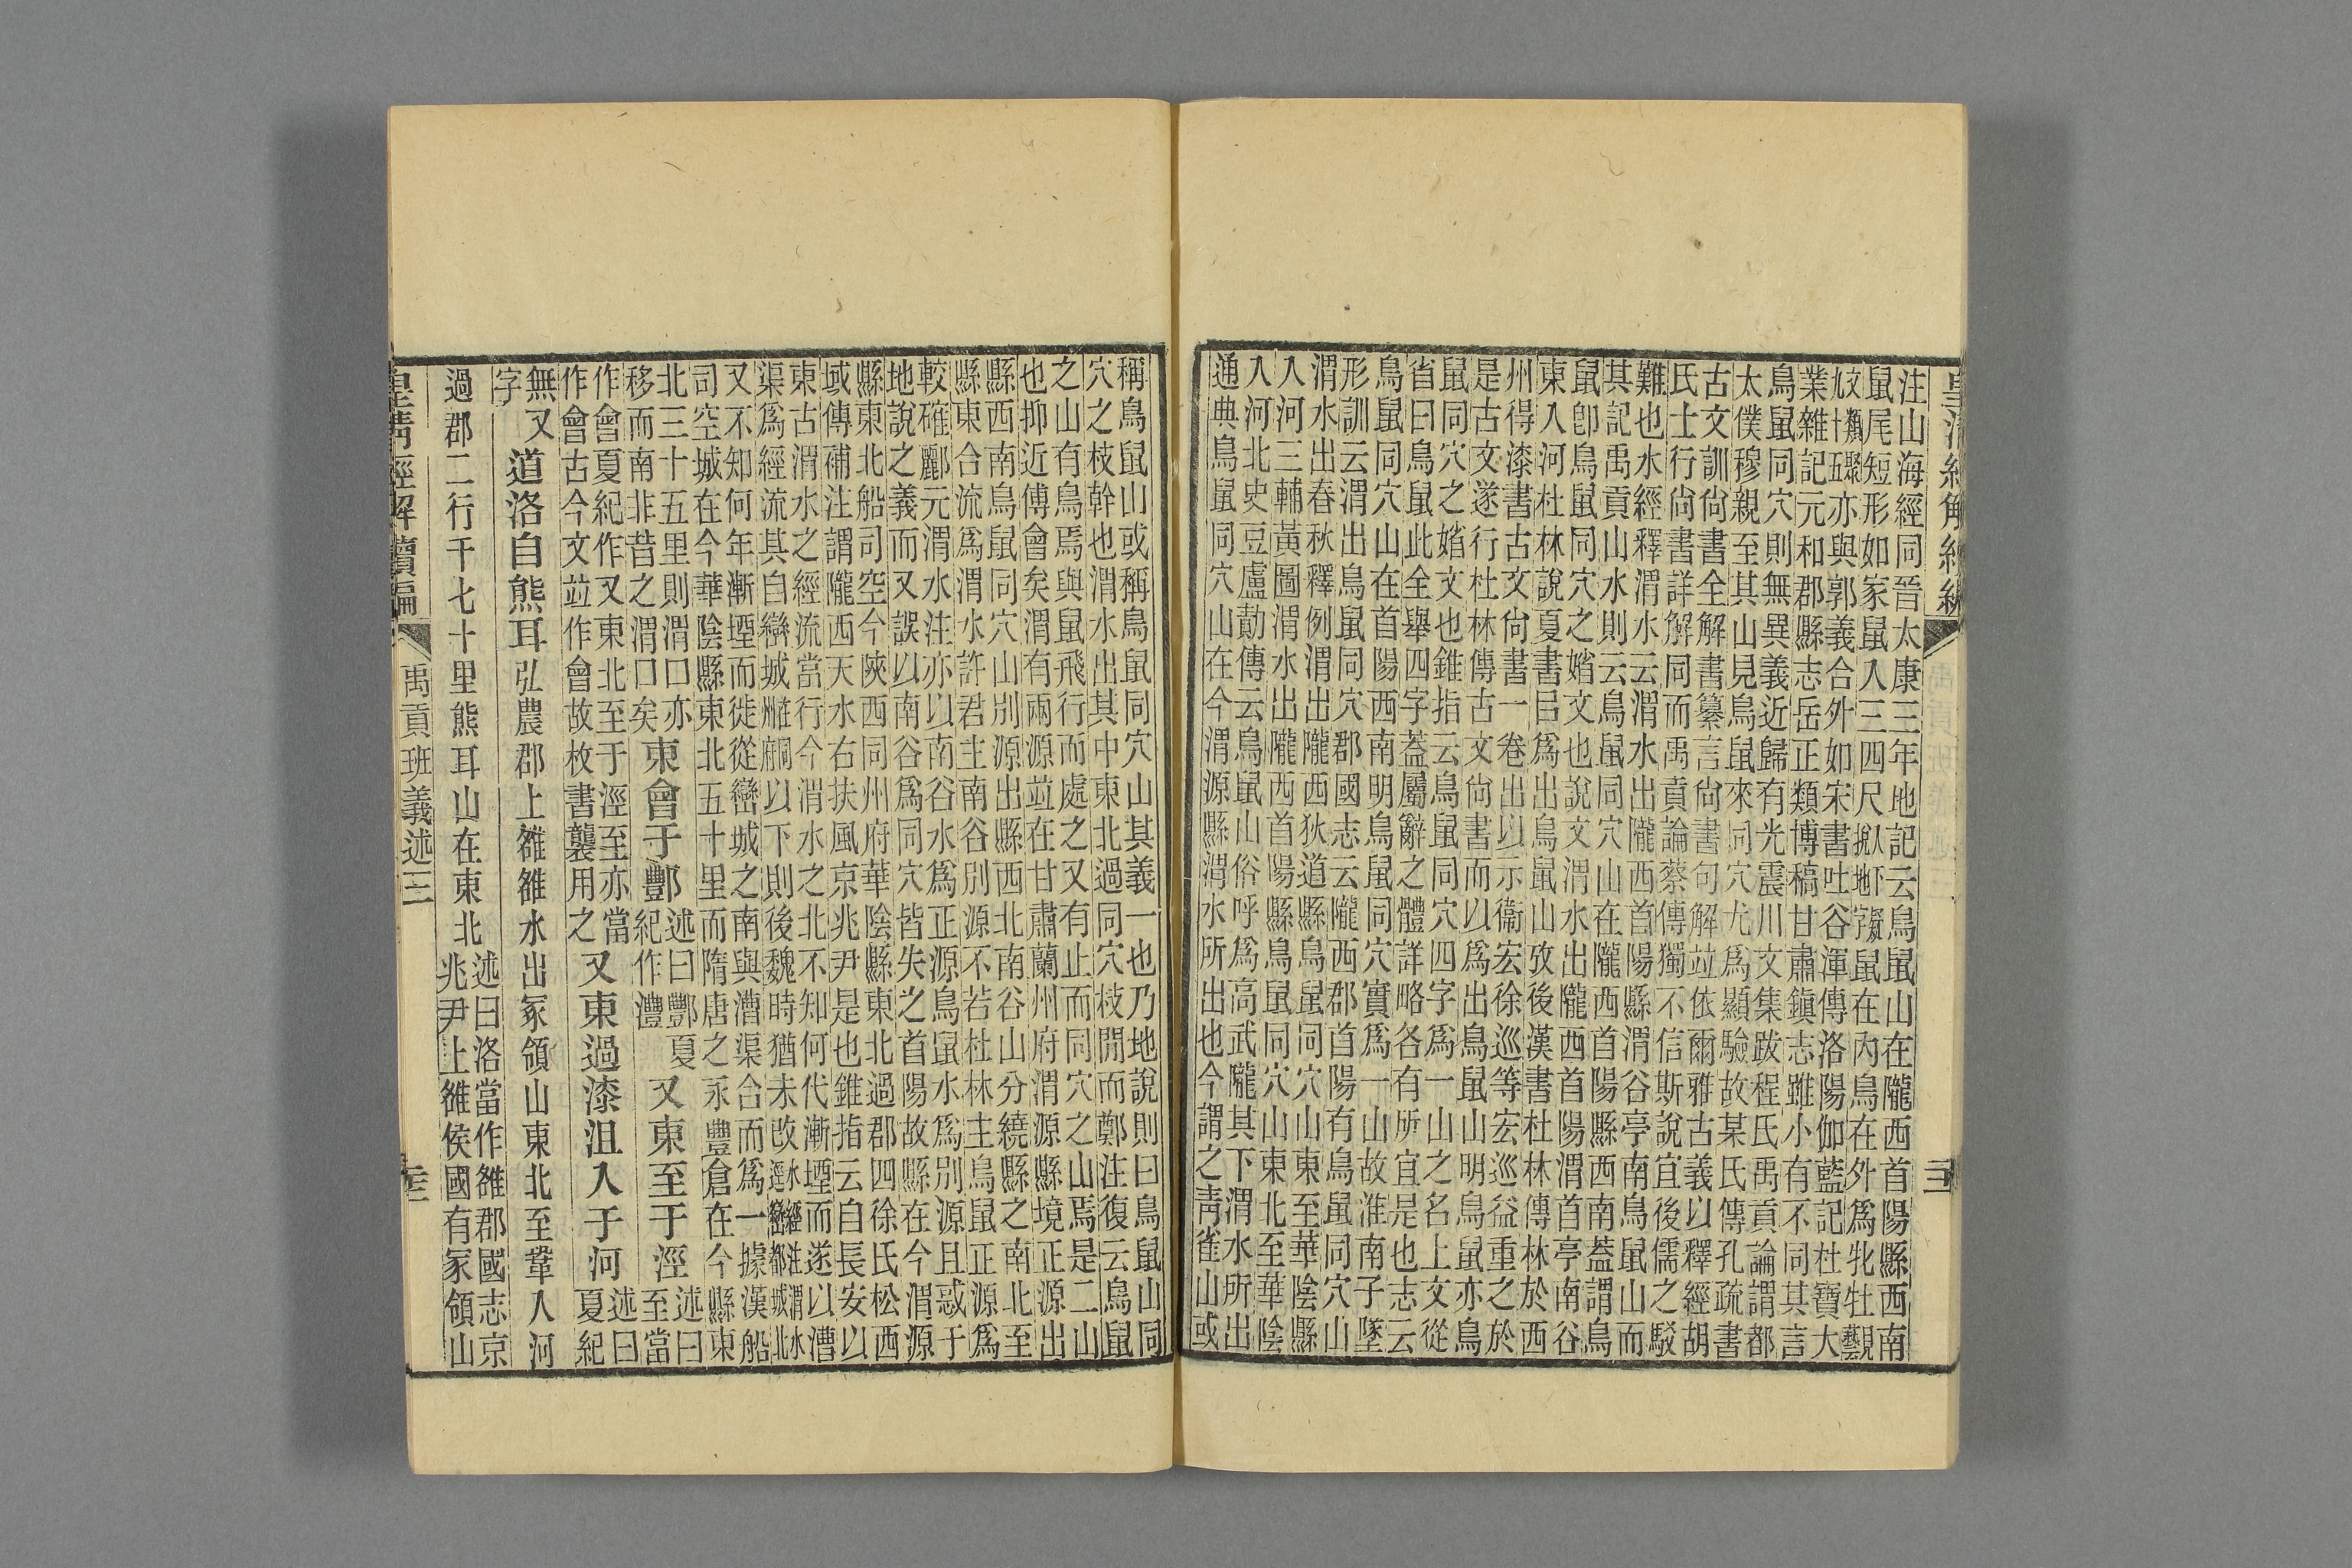 皇清經解續編
三
注山海經同晉太康三年地記云鳥鼠山在隴西首陽縣西南
鼠尾短形如家鼠入三四尺鼠在內鳥在外為牝牡觀
亦與郭義合外如宋書吐谷渾傳洛陽伽藍記杜寶大
業雜記元和郡縣志岳正類博稿甘肅鎮志雖小有不同其言
鳥鼠同穴則無異義近歸有光震川文集跋程氏禹貢論謂都
太僕穆親至其山見鳥鼠來同穴尤為顯驗故某氏傳孔疏書
古文訓尙書全解書纂言尙書句解並依爾雅古義以釋經胡
氏士行尙書詳解同而禹貢論蔡傳獨不信斯說宜後儒之駁
難也水經釋渭水云渭水出隴西首陽縣渭谷亭南鳥鼠山而
其記禹貢山水則云鳥鼠同穴山在隴西首陽縣西南蓋謂鳥
鼠卽鳥鼠同穴之媘文也說文渭水出隴西首陽渭首亭南谷
東入河杜林說夏書㠯為出鳥鼠山攷後漢書杜林傳林於西
州得漆書古文尙書一卷出以示衞宏徐巡等宏巡益重之於
是古文遂行杜林傳古文尙書而以為出鳥鼠山明鳥鼠亦鳥
鼠同穴之媘文也錐指云鳥鼠同穴四字為一山之名上文從
省曰鳥鼠此全舉四字蓋屬辭之體詳略各有所宜是也志云
鳥鼠同穴山在首陽西南明鳥鼠同穴實為一山故淮南子墜
形訓云渭出鳥鼠同穴郡國志云隴西郡首陽有鳥鼠同穴山
渭水出春秋釋例渭出隴西狄道縣鳥鼠同穴山東至華陰縣
入河三輔黃圖渭水出隴西首陽縣鳥鼠同穴山東北至華陰
入河北史豆盧勣傳云鳥鼠山俗呼為高武隴其下渭水所出
通典鳥鼠同穴山在今渭源縣渭水所出也今謂之靑雀山或
稱鳥鼠山或稱鳥鼠同穴山其義一也乃地說則曰鳥鼠山同
穴之枝幹也渭水出其中東北過同穴枝閒而鄭注復云鳥鼠
之山有鳥焉與鼠飛行而處之又有止而同穴之山焉是二山
也抑近傅會矣渭有兩源並在甘肅蘭州府渭源縣境正源出
縣西南鳥鼠同穴山別源出縣西北南谷山分繞縣之南北至
縣東合流為渭水許君主南谷別源不若杜林主鳥鼠正源為
較確酈元渭水注亦以南谷水為正源鳥鼠水為別源且惑于
地說之義而又誤以南谷為同穴皆失之首陽故縣在今渭源
縣東北船司空今陝西同州府華陰縣東北過郡四徐氏松西
域傳補注謂隴西天水右扶風京兆尹是也錐指云自長安以
東古渭水之經流當行今渭水之北不知何代漸堙而遂以漕
渠為經流其自巒城以下則後魏時猶未改水經注渭水逕巒都城北
又不知何年漸堙而徙從巒城之南與漕渠合而為一據漢船
司空城在今華陰縣東北五十里而隋唐之永豐倉在今縣東
北三十五里則渭口亦
移而南非昔之渭口矣
東會于酆
述曰酆夏
紀作灃
又東至于涇
述曰
至當
作會夏紀作又東北至于涇至亦當
作會古今文並作會故枚書襲用之
又東過漆沮入于河
述曰
夏紀
無又
字
道洛自熊耳
弘農郡上雒雒水出冢領山東北至鞏入河
過郡二行千七十里熊耳山在東北
述曰洛當作雒郡國志京
兆尹上雒侯國有冢領山
皇清經解續編
禹貢班義述三